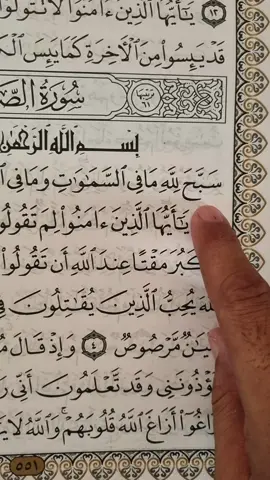 ١٣ يَٰٓأَيُّهَا ٱلَّذِينَ ءَامَنُوا۟ لَا تَتَوَلَّوْا۟
قَدْ يَئِسُوا۟ مِنَ ٱلْءَاخِرَةِ كَمَا يَئِسَ
سُورَةُ الصَّ
٦١
بِسْمِ ٱللَّهِ ٱلرَّحْمَٰنِ
سَبَّحَ لِلَّهِ مَا فِى ٱلسَّمَٰوَٰتِ وَمَا فِى
يَٰٓأَيُّهَا ٱلَّذِينَ ءَامَنُوا۟ لِمَ تَقُولُو
كَبُرَ مَقْتًا عِندَ ٱللَّهِ أَن تَقُولُوا۟
يُحِبُّ ٱلَّذِينَ يُقَٰتِلُونَ فِى
مَّرْصُوصٌ ٤ وَإِذْ قَالَ
ؤْذُونَنِى وَقَد تَّعْلَمُونَ أَنِّى
زَاغُوٓا۟ أَزَاغَ ٱللَّهُ قُلُوبَهُمْ ۚ وَٱللَّهُ لَا
٥٥١